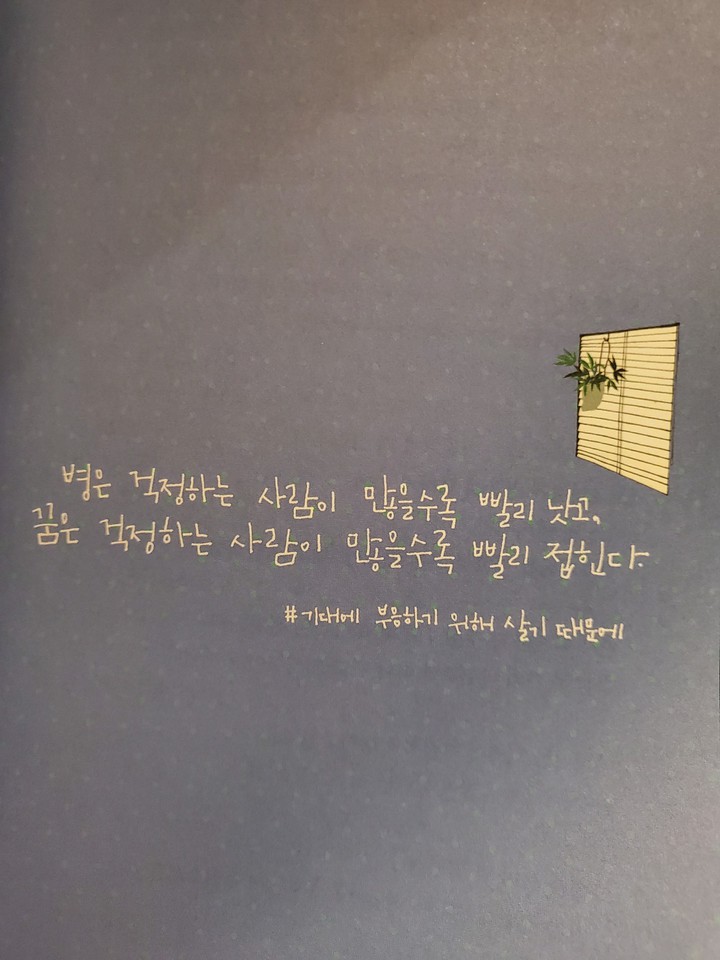 병은 걱정하는 사람이 많을수록 빨리 낫고,
꿈은 걱정하는 사람이 많을수록 빨리 접힌다.
#기대에 부응하기 위해 살기 때문에